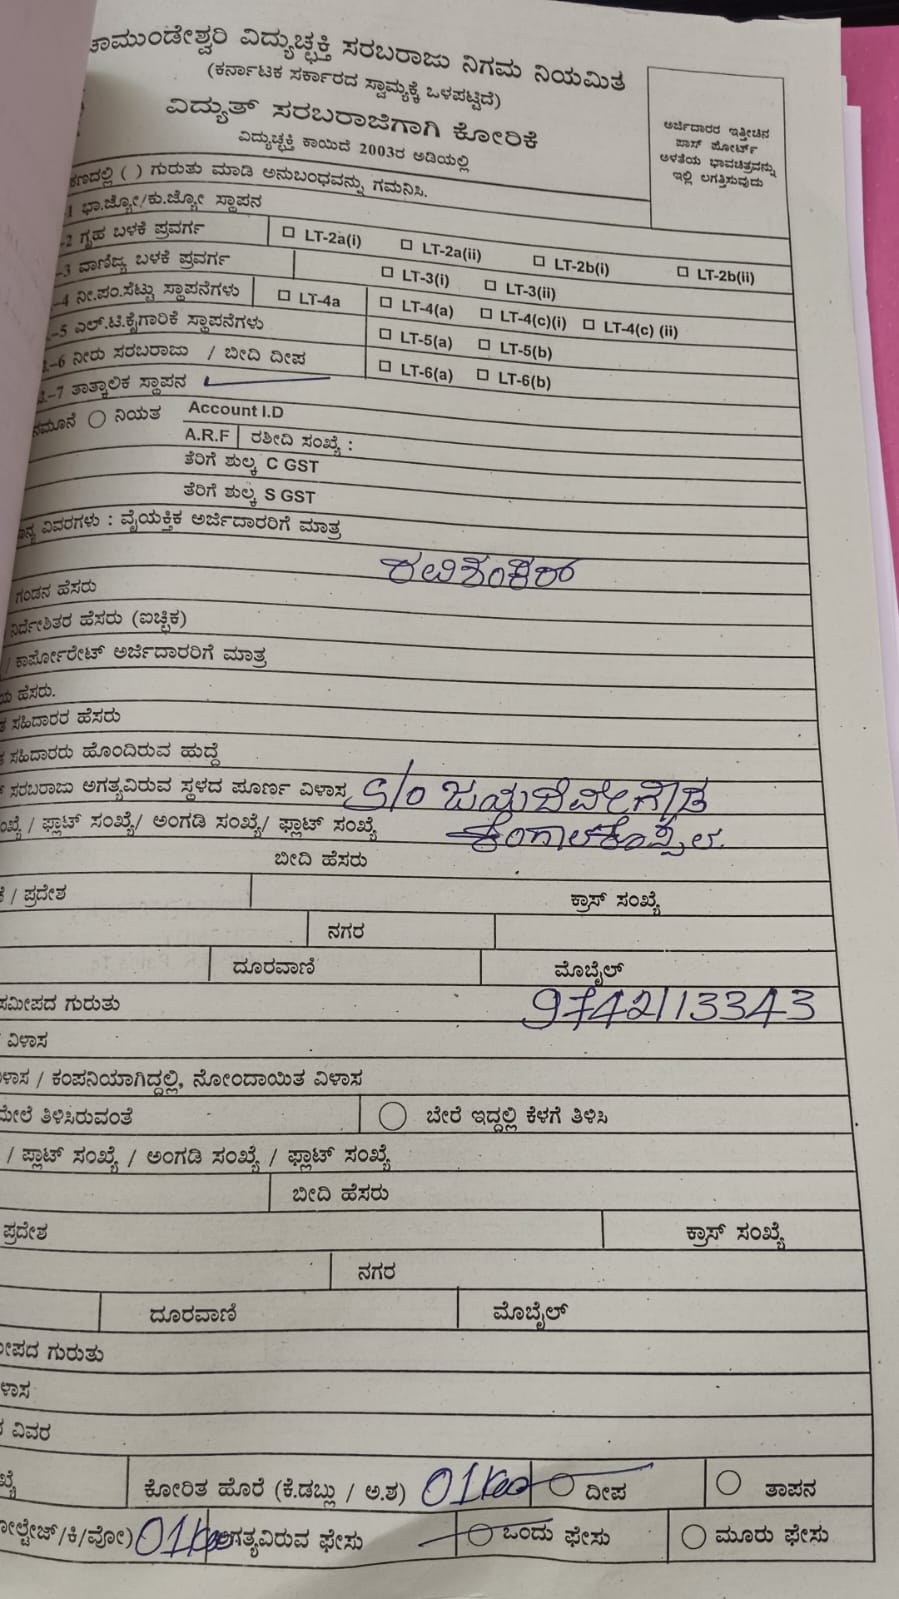 ಚಾಮುಂಡೇಶ್ವರಿ ವಿದ್ಯುಚ್ಛಕ್ತಿ ಸರಬರಾಜು ನಿಗಮ ನಿಯಮಿತ
(ಕರ್ನಾಟಕ ಸರ್ಕಾರದ ಸ್ವಾಮ್ಯಕ್ಕೆ ಒಳಪಟ್ಟಿದೆ)
ವಿದ್ಯುತ್ ಸರಬರಾಜಿಗಾಗಿ ಕೋರಿಕೆ
ವಿದ್ಯುಚ್ಛಕ್ತಿ ಕಾಯಿದೆ 2003ರ ಅಡಿಯಲ್ಲಿ
ಅರ್ಜಿದಾರರ ಇತ್ತೀಚಿನ
ಪಾಸ್ ಪೋರ್ಟ್
ಅಳತೆಯ ಭಾವಚಿತ್ರವನ್ನು
ಇಲ್ಲಿ ಲಗತ್ತಿಸುವುದು
ಕಣದಲ್ಲಿ ( ) ಗುರುತು ಮಾಡಿ ಅನುಬಂಧವನ್ನು ಗಮನಿಸಿ.
-1 ಭಾ.ಜ್ಯೋ/ಕು.ಜ್ಯೋ ಸ್ಥಾಪನ
-2 ಗೃಹ ಬಳಕೆ ಪ್ರವರ್ಗ LT-2a(i) LT-2a(ii) LT-2b(i) LT-2b(ii)
-3 ವಾಣಿಜ್ಯ ಬಳಕೆ ಪ್ರವರ್ಗ LT-3(i) LT-3(ii)
-4 ನೀ.ಪಂ.ಸೆಟ್ಟು ಸ್ಥಾಪನೆಗಳು LT-4a LT-4(a) LT-4(c)(i) LT-4(c) (ii)
-5 ಎಲ್.ಟಿ.ಕೈಗಾರಿಕೆ ಸ್ಥಾಪನೆಗಳು LT-5(a) LT-5(b)
-6 ನೀರು ಸರಬರಾಜು / ಬೀದಿ ದೀಪ LT-6(a) LT-6(b)
-7 ತಾತ್ಕಾಲಿಕ ಸ್ಥಾಪನ
ನಮೂನೆ ನಿಯತ Account I.D
A.R.F ರಶೀದಿ ಸಂಖ್ಯೆ :
ತೆರಿಗೆ ಶುಲ್ಕ C GST
ತೆರಿಗೆ ಶುಲ್ಕ S GST
ವಿವರಗಳು : ವೈಯಕ್ತಿಕ ಅರ್ಜಿದಾರರಿಗೆ ಮಾತ್ರ
ರವಿಶಂಕರ್
ಗಂಡನ ಹೆಸರು
ನಿರ್ದೇಶಿತರ ಹೆಸರು (ಐಚ್ಛಿಕ)
/ ಕಾರ್ಪೋರೇಟ್ ಅರ್ಜಿದಾರರಿಗೆ ಮಾತ್ರ
ಹೆಸರು.
ಸಹಿದಾರರ ಹೆಸರು
ಸಹಿದಾರರು ಹೊಂದಿರುವ ಹುದ್ದೆ
ಸರಬರಾಜು ಅಗತ್ಯವಿರುವ ಸ್ಥಳದ ಪೂರ್ಣ ವಿಳಾಸ S/o ಜಯದೇವೇಗೌಡ
/ ಫ್ಲಾಟ್ ಸಂಖ್ಯೆ/ ಅಂಗಡಿ ಸಂಖ್ಯೆ/ ಫ್ಲಾಟ್ ಸಂಖ್ಯೆ
ಬೀದಿ ಹೆಸರು
/ ಪ್ರದೇಶ ಕ್ರಾಸ್ ಸಂಖ್ಯೆ
ನಗರ
ದೂರವಾಣಿ ಮೊಬೈಲ್
ಸಮೀಪದ ಗುರುತು 9742113343
ವಿಳಾಸ
/ ಕಂಪನಿಯಾಗಿದ್ದಲ್ಲಿ, ನೋಂದಾಯಿತ ವಿಳಾಸ
ಮೇಲೆ ತಿಳಿಸಿರುವಂತೆ ಬೇರೆ ಇದ್ದಲ್ಲಿ ಕೆಳಗೆ ತಿಳಿಸಿ
/ ಪ್ಲಾಟ್ ಸಂಖ್ಯೆ / ಅಂಗಡಿ ಸಂಖ್ಯೆ / ಫ್ಲಾಟ್ ಸಂಖ್ಯೆ
ಬೀದಿ ಹೆಸರು
ಪ್ರದೇಶ ಕ್ರಾಸ್ ಸಂಖ್ಯೆ
ನಗರ
ದೂರವಾಣಿ ಮೊಬೈಲ್
ಗುರುತು
ವಿವರ
ಕೋರಿತ ಹೊರೆ (ಕೆ.ಡಬ್ಲು / ಅ.ಶ) ದೀಪ ತಾಪನ
ಅಗತ್ಯವಿರುವ ಫೇಸು ಒಂದು ಫೇಸು ಮೂರು ಫೇಸು